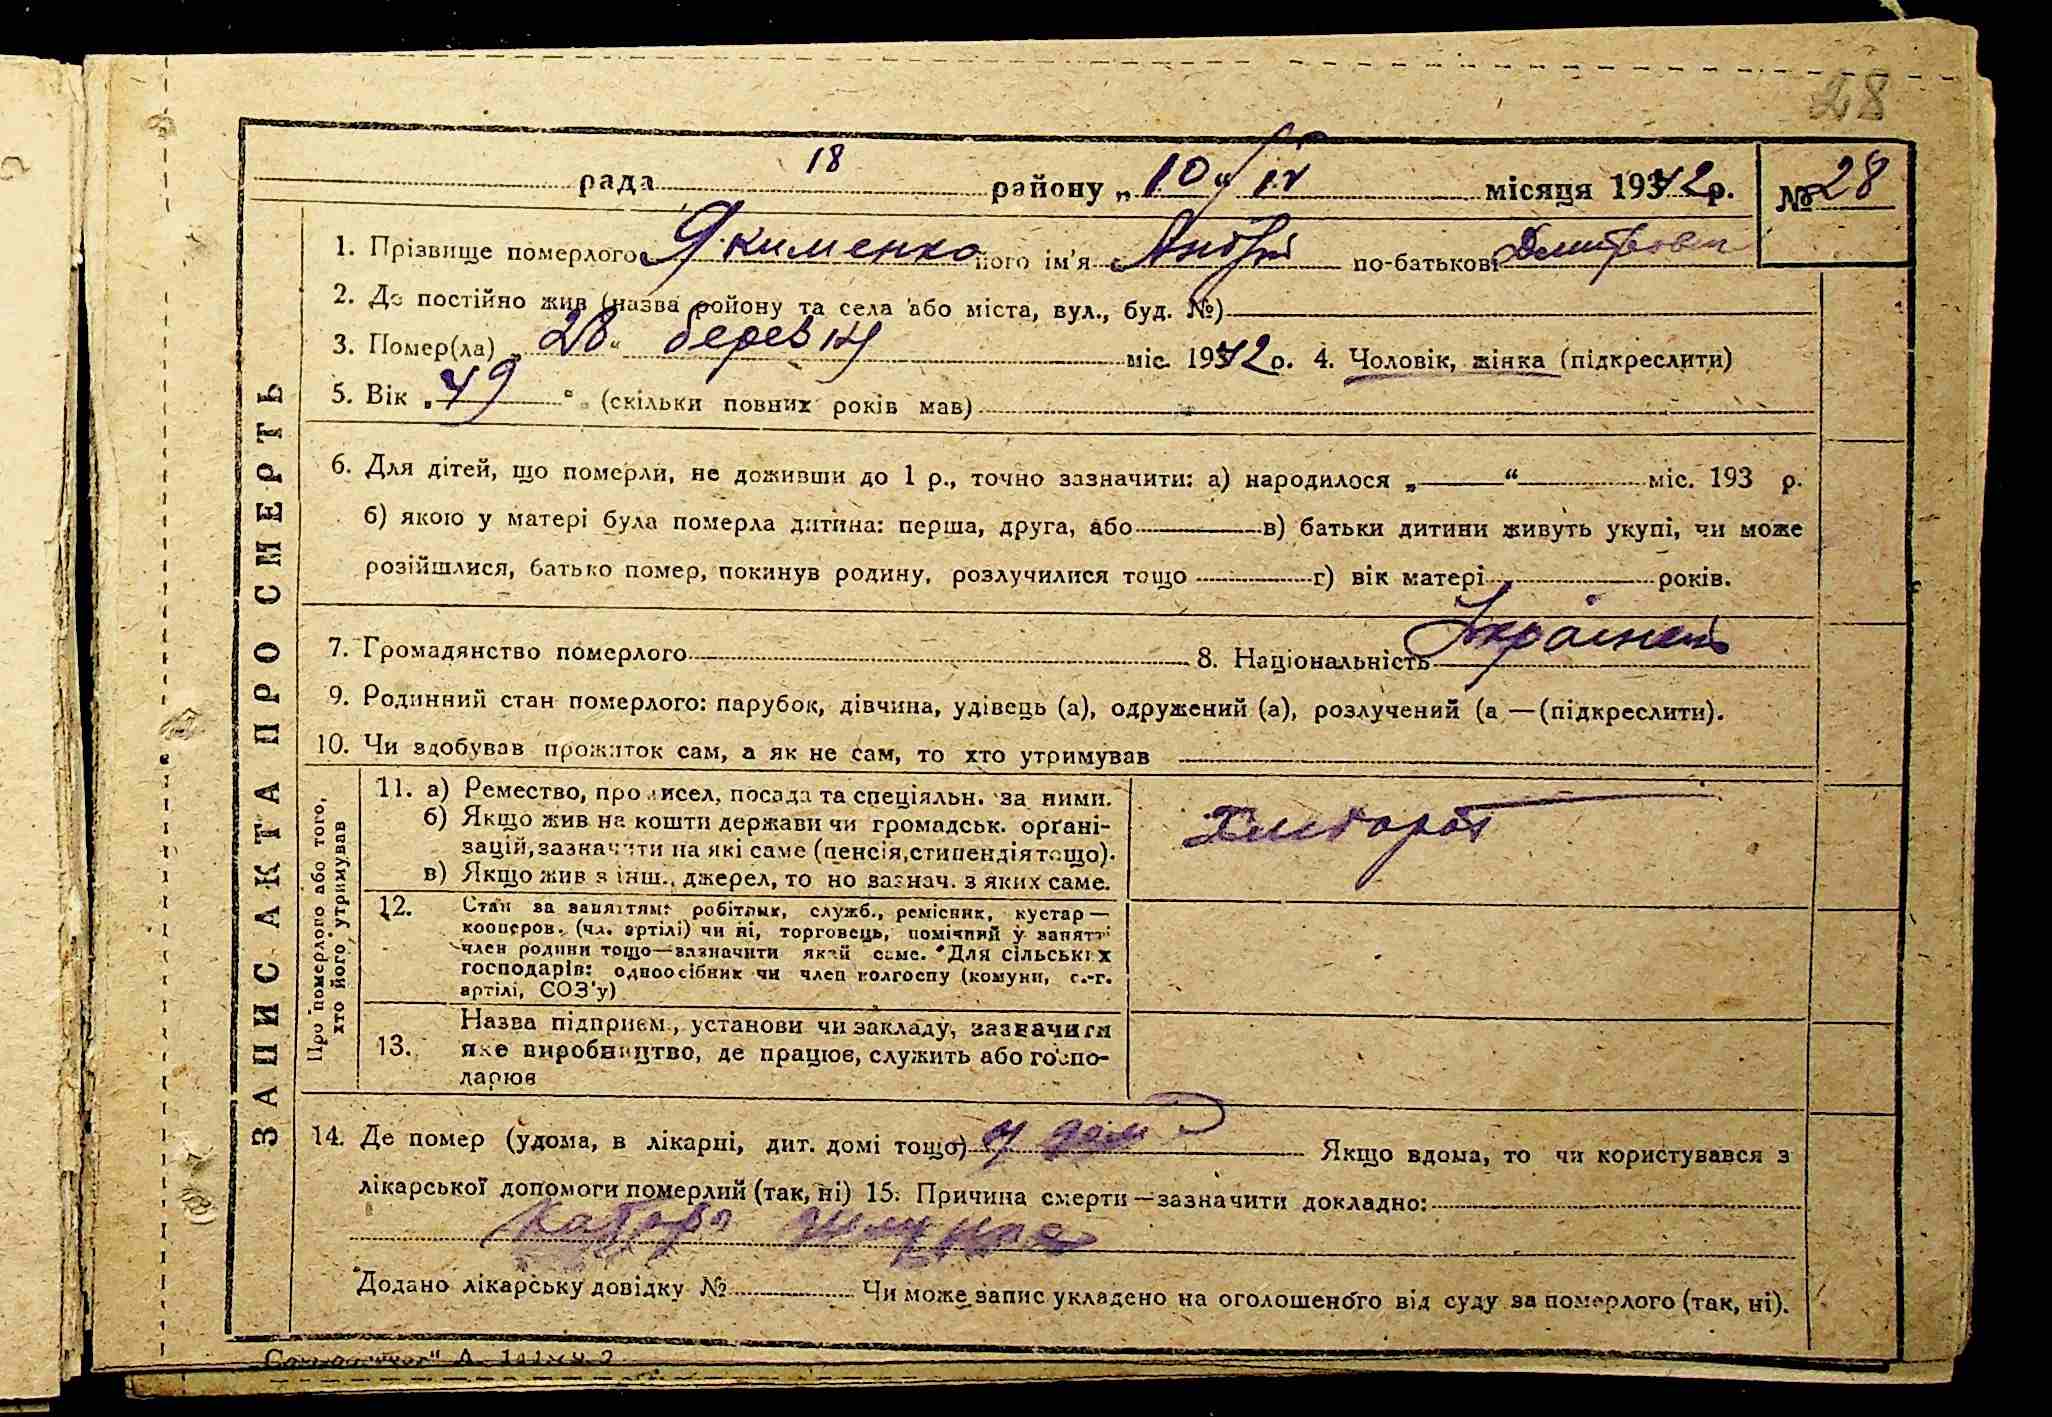 28
18
рада районну „10“ IV місяця 1942 р. № 28
1. Прізвище померлого Якименко його ім'я Андрій по-батькові
2. Де постійно жив (назва району та села або міста, вул., буд. №)
3. Помер(ла) „28“ березня міс. 1942 р. 4. Чоловік, жінка (підкреслити)
5. Вік „49“ (скільки повних років мав)
6. Для дітей, що померли, не доживши до 1 р., точно зазначити: а) народилося „ “ міс. 193 р.
б) якою у матері була померла дитина: перша, друга, або в) батьки дитини живуть укупі, чи може
розійшлися, батько помер, покинув родину, розлучилися тощо г) вік матері років.
7. Громадянство померлого 8. Національність Українець
9. Родинний стан померлого: парубок, дівчина, удівець (а), одружений (а), розлучений (а — (підкреслити).
10. Чи здобував прожиток сам, а як не сам, то хто утримував
ЗАПИС АКТА ПРО СМЕРТЬ
Про померлого або того,
хто його утримував
11. а) Ремество, промисел, посада та спеціяльн. за ними.
б) Якщо жив на кошти держави чи громадськ. орґані-
зацій, зазначити на які саме (пенсія, стипендія тощо).
в) Якщо жив з інш. джерел, то но зазнач. з яких саме.
Хлібороб
12. Стан за заняттям: робітник, служб., ремісник, кустар —
кооперов. (чл. артілі) чи ні, торговець, помічний у занятті
член родини тощо — зазначити який саме. Для сільських
господарів: одноосібник чи член колгоспу (комуни, с.-г.
артілі, СОЗ'у)
13. Назва підприєм., установи чи закладу, зазначити
яке виробництво, де працює, служить або госпо-
дарює
14. Де помер (удома, в лікарні, дит. домі тощо) у дома Якщо вдома, то чи користувався з
лікарської допомоги померлий (так, ні) 15. Причина смерти — зазначити докладно:
Додано лікарську довідку № Чи може запис укладено на оголошеного від суду за померлого (так, ні).